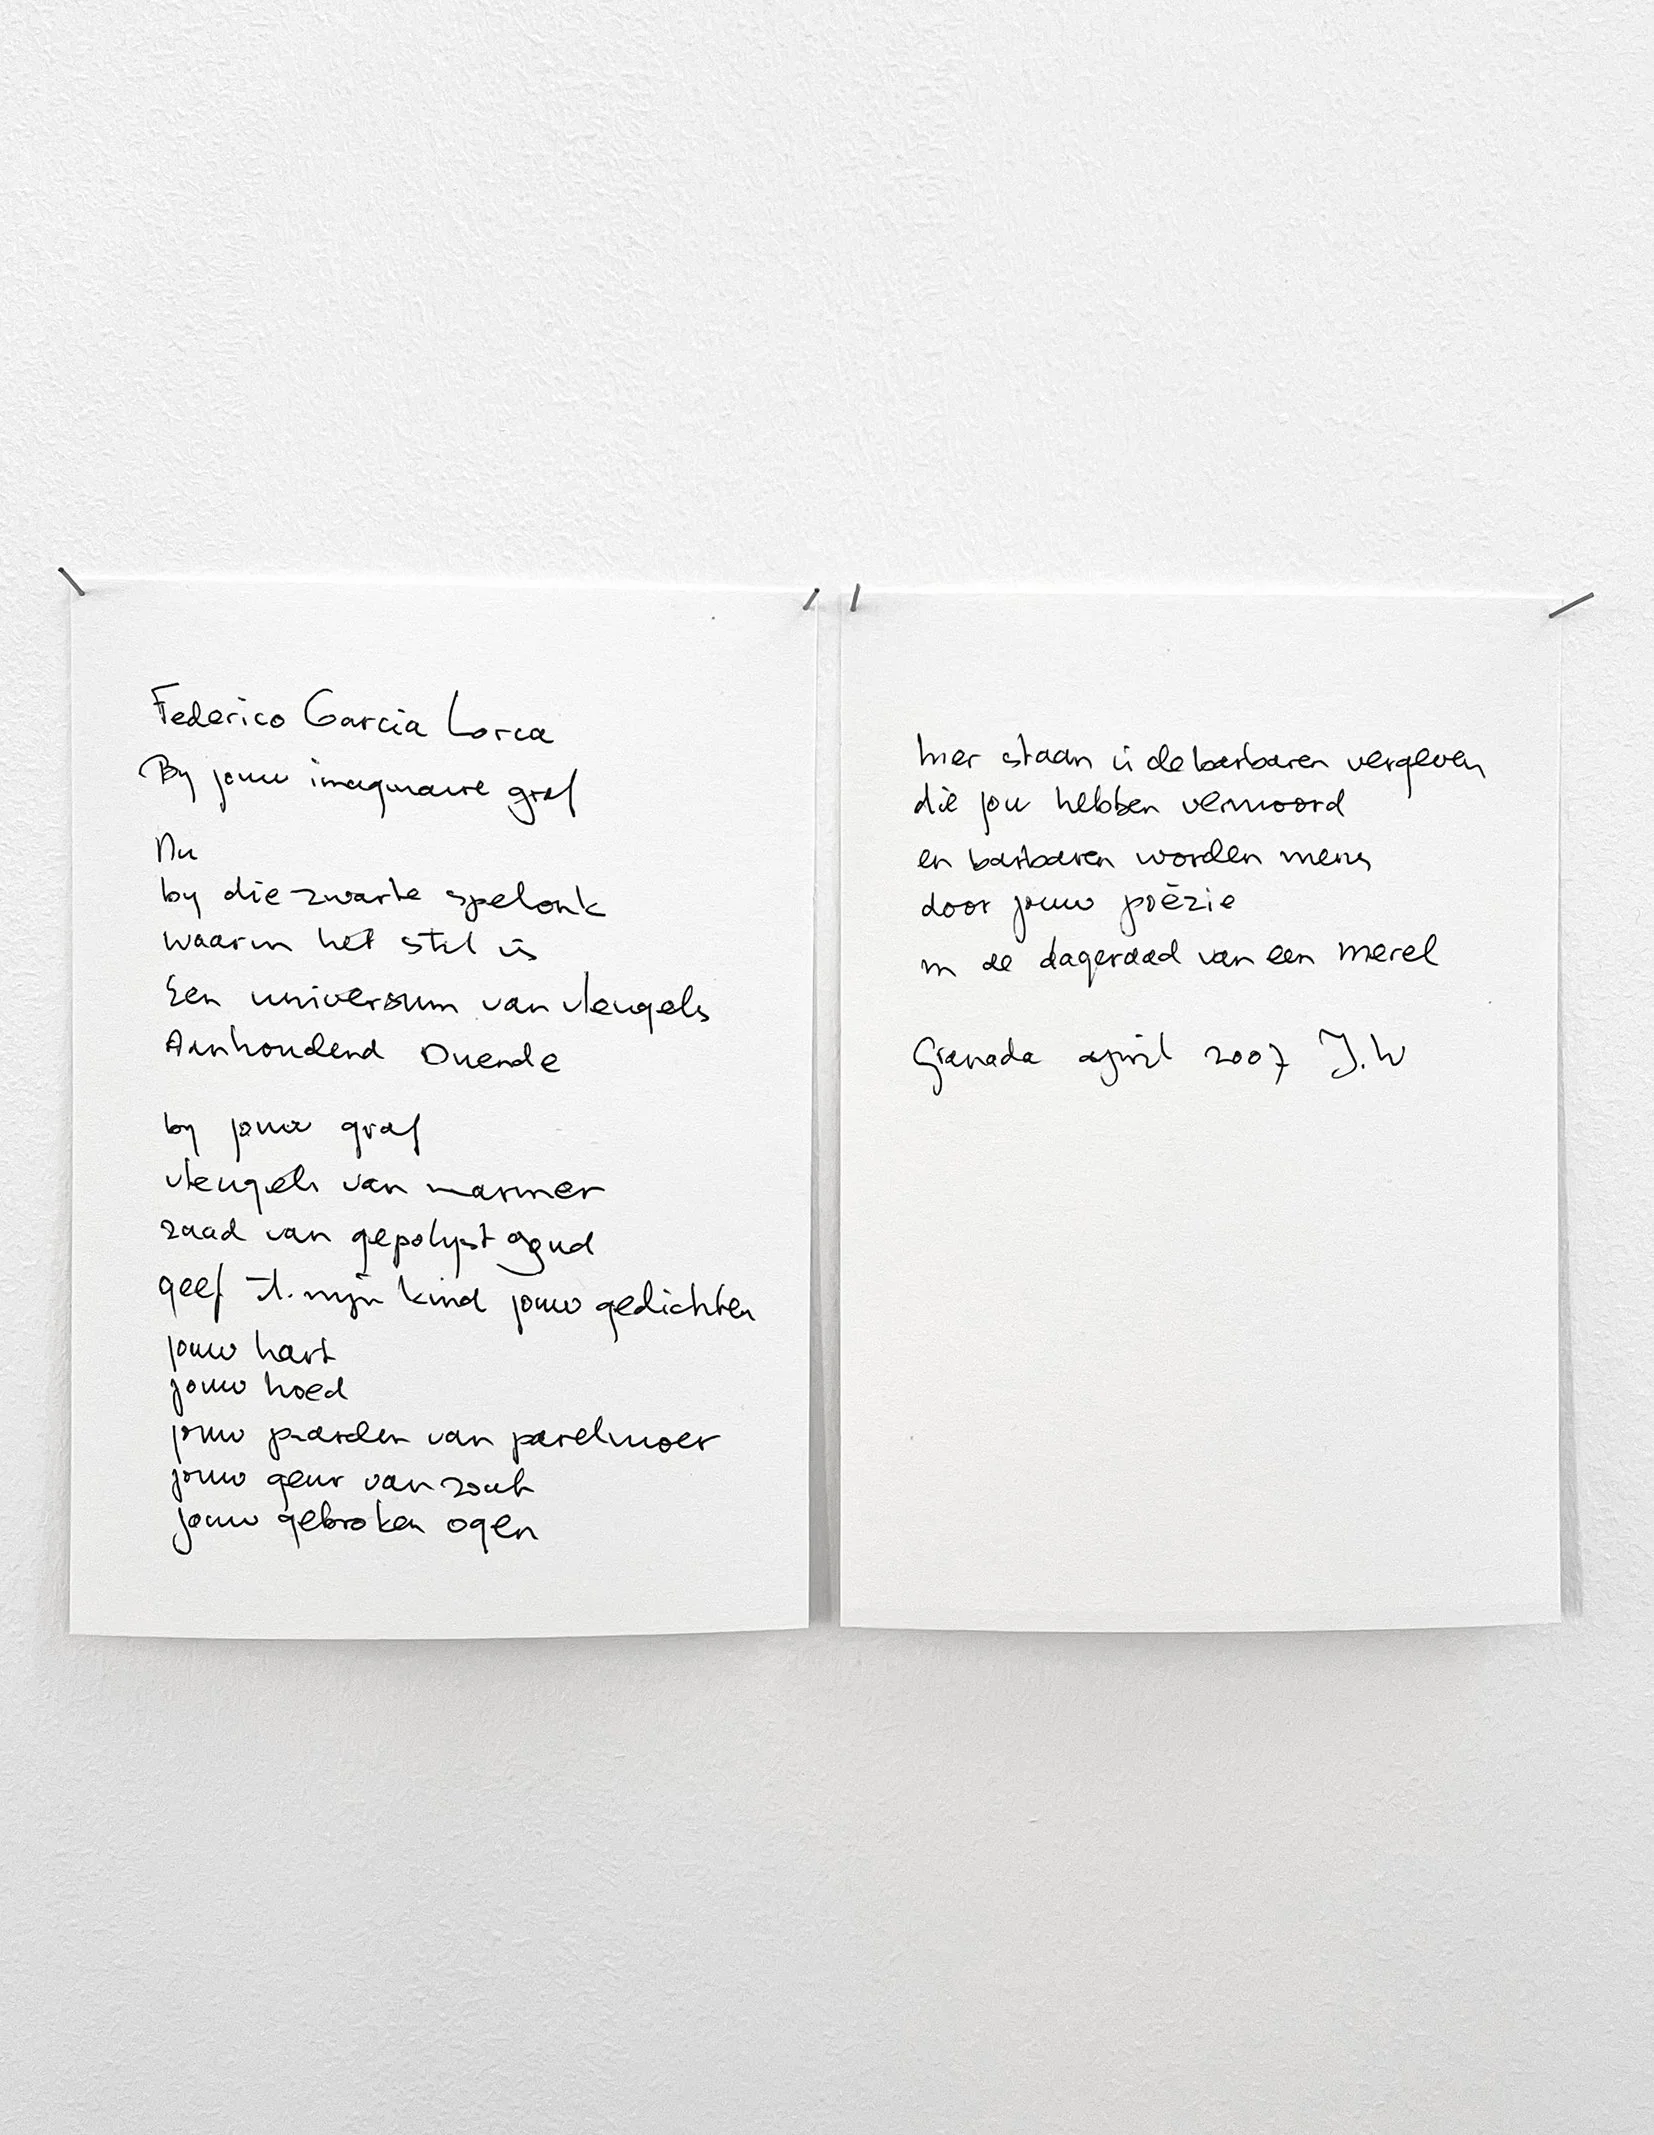 Federico Garcia Lorca
By jouw imaginaire graf
Nu
by die zwarte spelonk
waarin het stil is
Een universum van vleugels
Aanhoudend Duende
by jouw graf
vleugels van marmer
zaad van gepolyst goud
geef mijn kind jouw gedichten
jouw hart
jouw hoed
jouw paarden van parelmoer
jouw geur van zout
jouw gebroken ogen
hier staan is de barbaren vergeven
die jou hebben vermoord
en barbaren worden mens
door jouw poëzie
in de dageraad van een merel
Granada april 2007 J.W